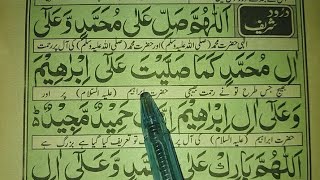 درود شریف
اَللّٰهُمَّ صَلِّ عَلٰی مُحَمَّدٍ وَّعَلٰٓی
الٰہی حضرت محمد (صلی اللہ علیہ وسلم) اور حضرت محمد (صلی اللہ علیہ وسلم) کی آل پر رحمت
اٰلِ مُحَمَّدٍ كَمَا صَلَّیْتَ عَلٰٓی اِبْرٰهِیْمَ
بھیج جس طرح تو نے رحمت بھیجی حضرت ابراہیم (علیہ السلام) پر اور
وَعَلٰٓی اٰلِ اِبْرٰهِیْمَ حَمِیْدٌ مَّجِیْدٌ
حضرت ابراہیم (علیہ السلام) کی آل پر تو تعریف کیا گیا ہے بزرگ ہے
اَللّٰهُمَّ بَارِكْ عَلٰی مُحَمَّدٍ وَّعَلٰٓی اٰلِ